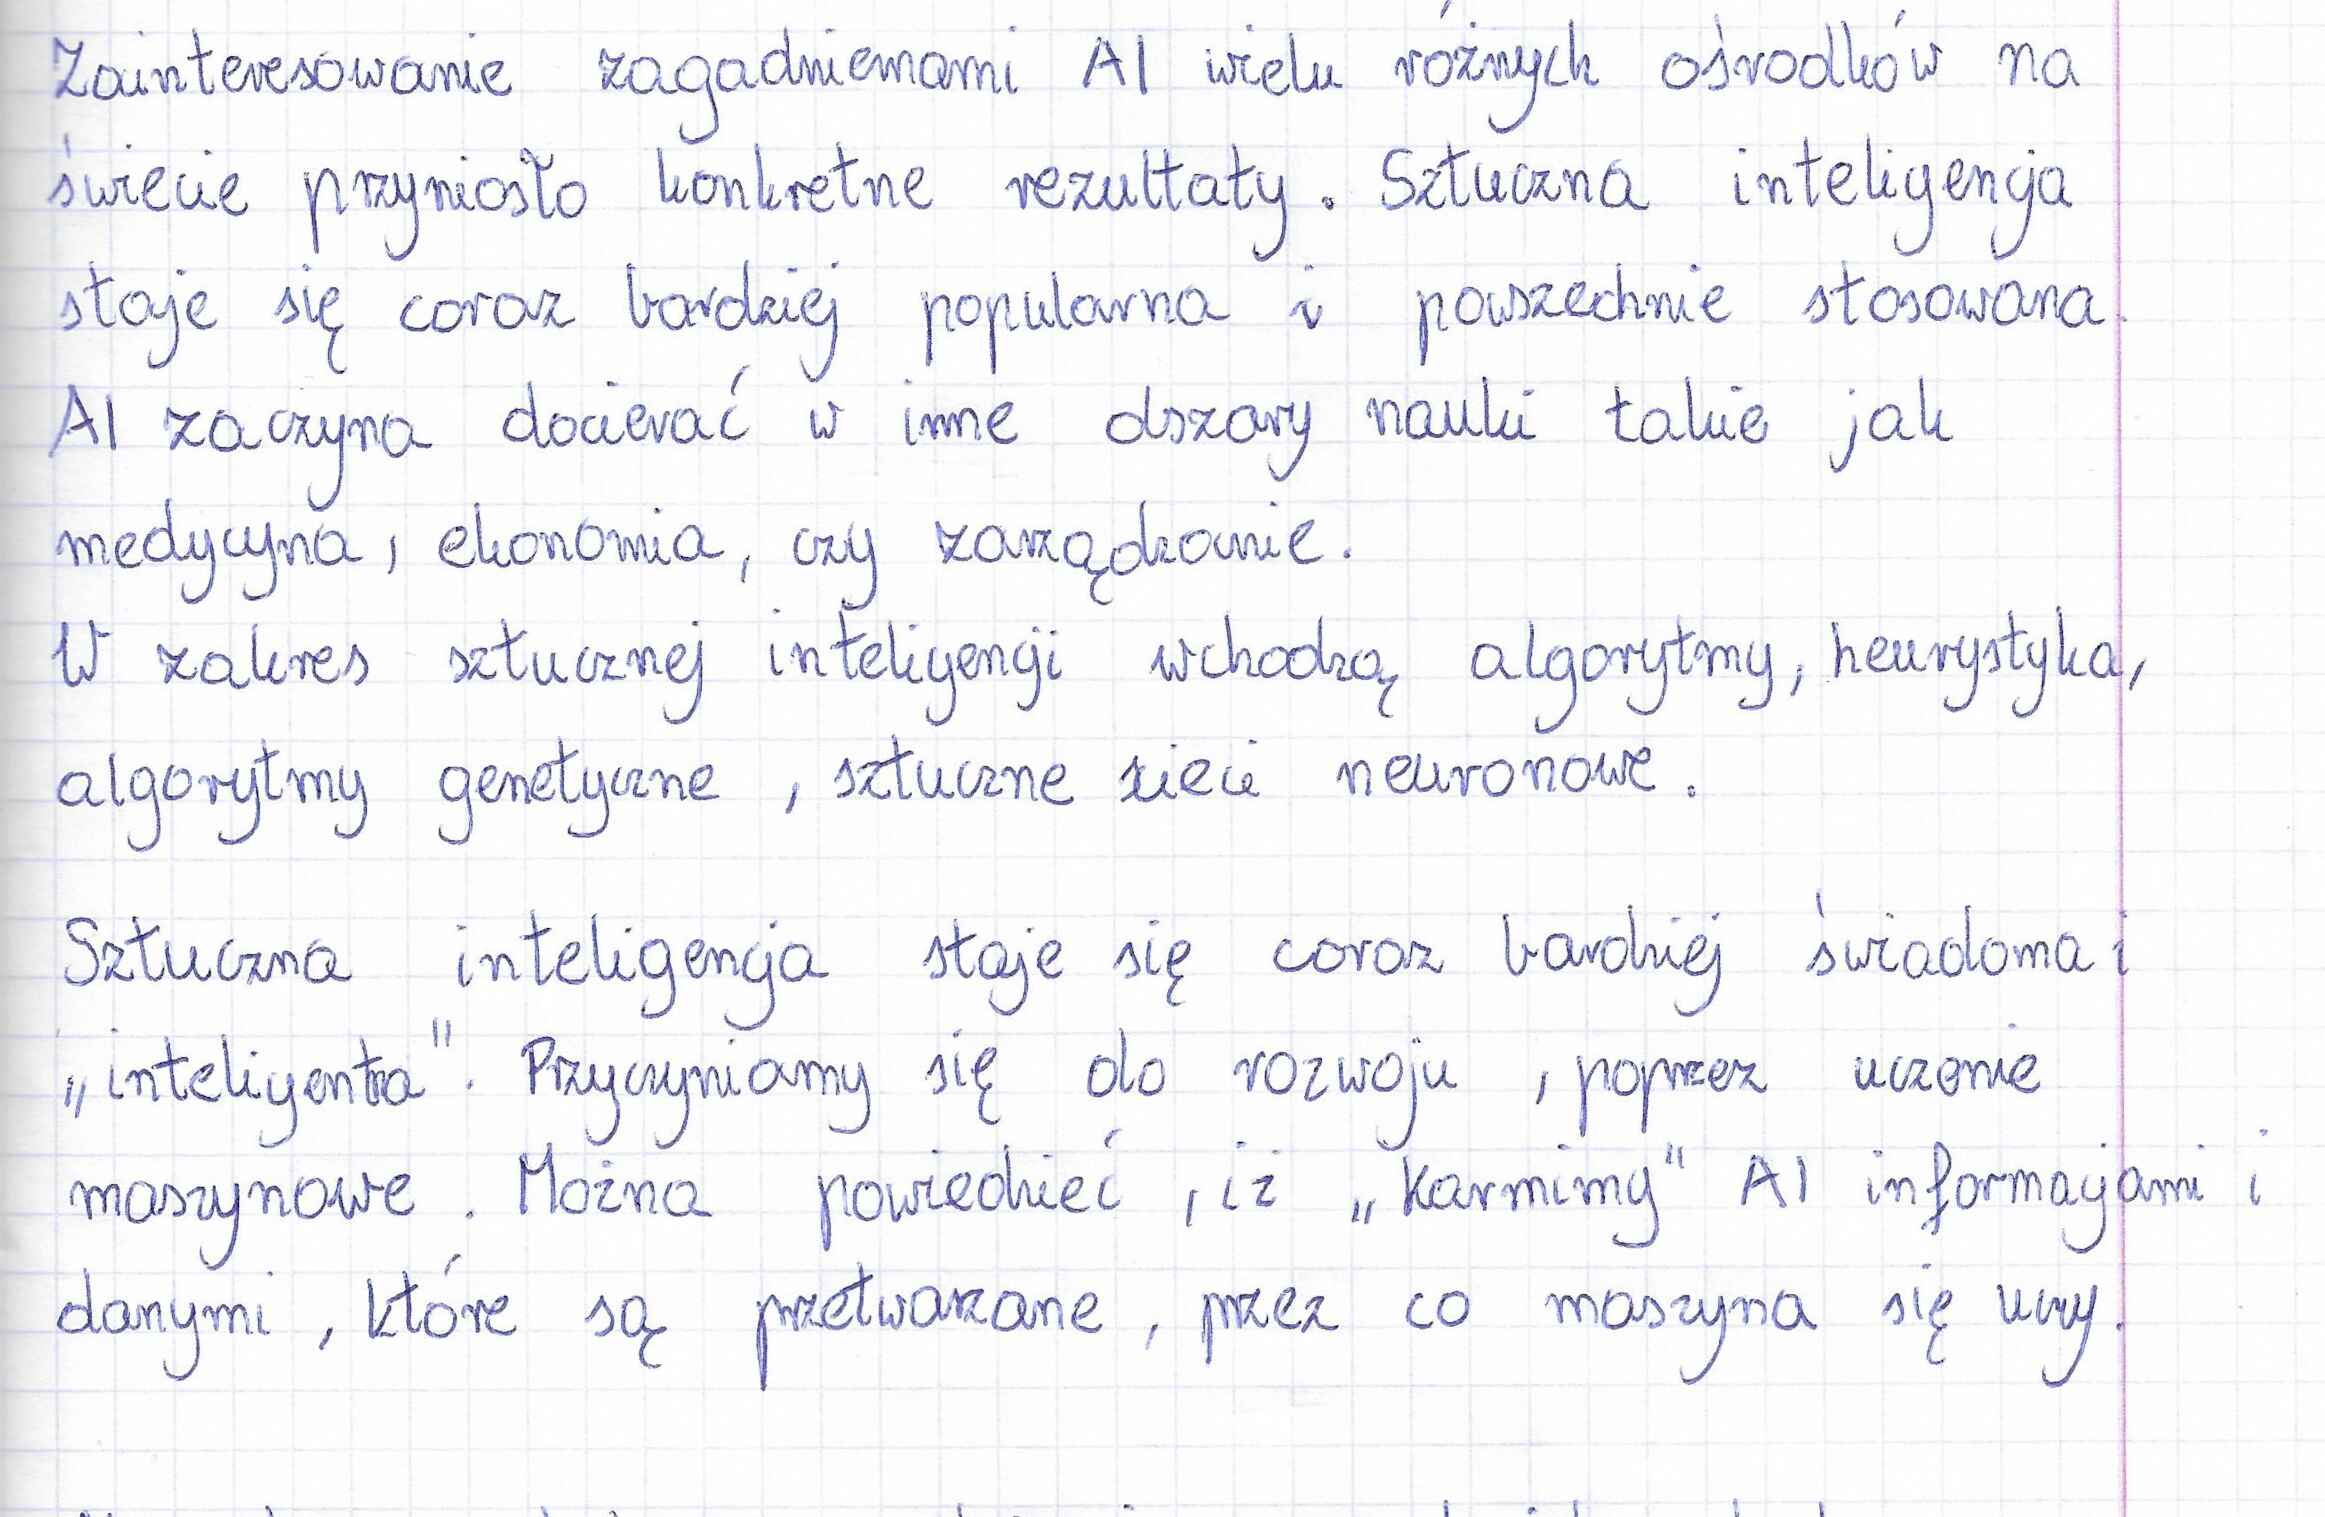 Zainteresowanie zagadnieniami AI wielu różnych ośrodków na
świecie przyniosło konkretne rezultaty. Sztuczna inteligencja
staje się coraz bardziej popularna i powszechnie stosowana.
AI zaczyna docierać w inne obszary nauki takie jak
medycyna, ekonomia, czy zarządzanie.
W zakres sztucznej inteligencji wchodzą algorytmy, heurystyka,
algorytmy genetyczne, sztuczne sieci neuronowe.
Sztuczna inteligencja staje się coraz bardziej świadoma i
„inteligentna". Przyczyniamy się do rozwoju, poprzez uczenie
maszynowe. Można powiedzieć, iż „karmimy" AI informacjami i
danymi, które są przetwarzane, przez co maszyna się uczy.